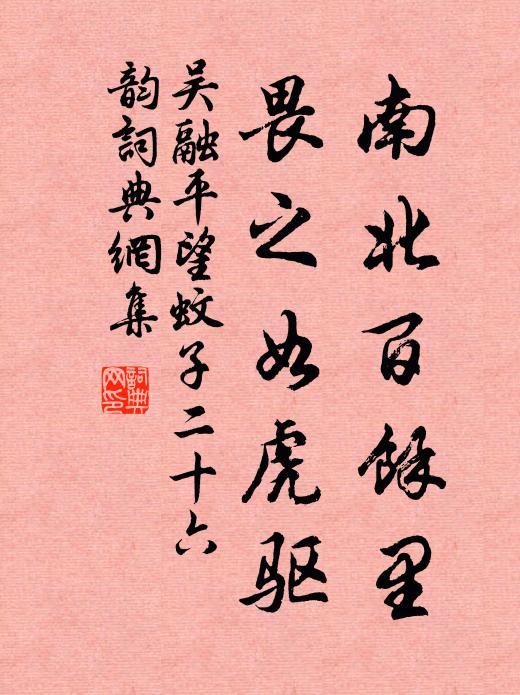 南北百餘里
畏之如虎驱
吴融平望蚊子二十六
韵詞典網集
詞典
网印